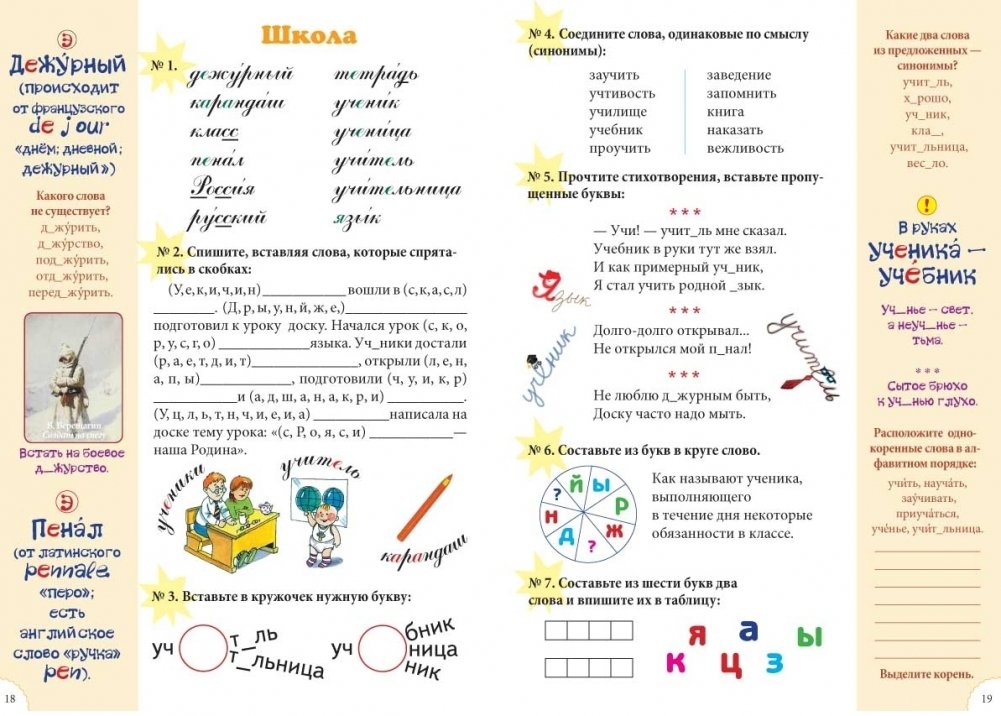 Э
Дежу́рный
(происходит
от французского
de jour
«днём; дневной;
дежурный»)
Какого слова
не существует?
д_жу́рить,
д_жу́рство,
под_жу́рить,
отд_жу́рить,
перед_жу́рить.
В. Верещагин.
Солдат на снегу
Встать на боевое
д_журство.
Э
Пена́л
(от латинского
pennale
«перо»;
есть
английское
слово «ручка»
pen).
18
Школа
№ 1.
дежу́рный тетра́дь
каранда́ш учени́к
класс учени́ца
пена́л учи́тель
Росси́я учи́тельница
ру́сский язы́к
№ 2. Спишите, вставляя слова, которые спрята-
лись в скобках:
(У,е,к,и,ч,и,н)____________ вошли в (с,к,а,с,л)
_________. (Д, р, ы, у, н, й, ж, е,)__________________
подготовил к уроку доску. Начался урок (с, к, о,
р, у, с, г, о) _____________языка. Уч_ники достали
(р, а, е, т, д, и, т)_______________, открыли (л, е, н,
а, п, ы)_____________, подготовили (ч, у, и, к, р)
____________и (а, д, ш, а, н, а, к, р, и) ___________.
(У, ц, л, ь, т, н, ч, и, е, и, а) ___________написала на
доске тему урока: «(с, Р, о, я, с, и) ____________—
наша Родина».
ученики
учитель
карандаш
№ 3. Вставьте в кружочек нужную букву:
уч т_ль
т_льница
уч бник
ница
ник
№ 4. Соедините слова, одинаковые по смыслу
(синонимы):
заучить заведение
учтивость запомнить
училище книга
учебник наказать
проучить вежливость
№ 5. Прочтите стихотворения, вставьте пропу-
щенные буквы:
* * *
— Учи! — учит_ль мне сказал.
Учебник в руки тут же взял.
И как примерный уч_ник,
Я стал учить родной _зык.
* * *
Долго-долго открывал...
Не открылся мой п_нал!
* * *
Не люблю д_журным быть,
Доску часто надо мыть.
Язык
ученик
учитель
№ 6. Составьте из букв в круге слово.
? й ы р ж ? д а н
Как называют ученика,
выполняющего
в течение дня некоторые
обязанности в классе.
№ 7. Составьте из шести букв два
слова и впишите их в таблицу:
я а ы
к ц з
Какие два слова
из предложенных —
синонимы?
учит_ль,
х_рошо,
уч_ник,
кла__,
учит_льница,
вес_ло.
!
В руках
ученика́ —
уче́бник
Уч_нье — свет,
а неуч_нье —
тьма.
* * *
Сытое брюхо
к уч_нью глухо.
Расположите одно-
коренные слова в ал-
фавитном порядке:
учи́ть, науча́ть,
зау́чивать,
приуча́ться,
уче́нье, учи́т_льница.
Выделите корень.
19